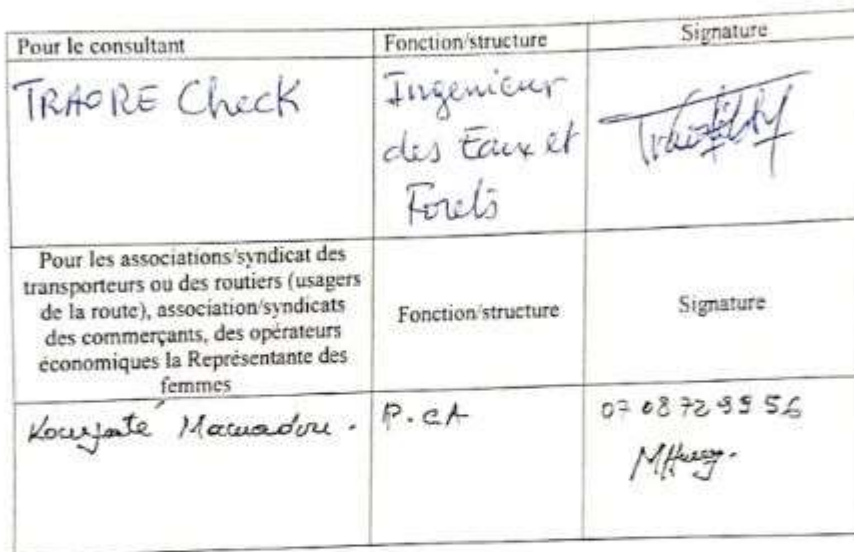 Pour le consultant
Fonction/structure
Signature
TRAORE Check
Ingenieur
des Eaux et
Forets
Pour les associations/syndicat des
transporteurs ou des routiers (usagers
de la route), association/syndicats
des commerçants, des opérateurs
économiques la Représentante des
femmes
Fonction/structure
Signature
Mamadou.
P.CA
07 08 72 99 56